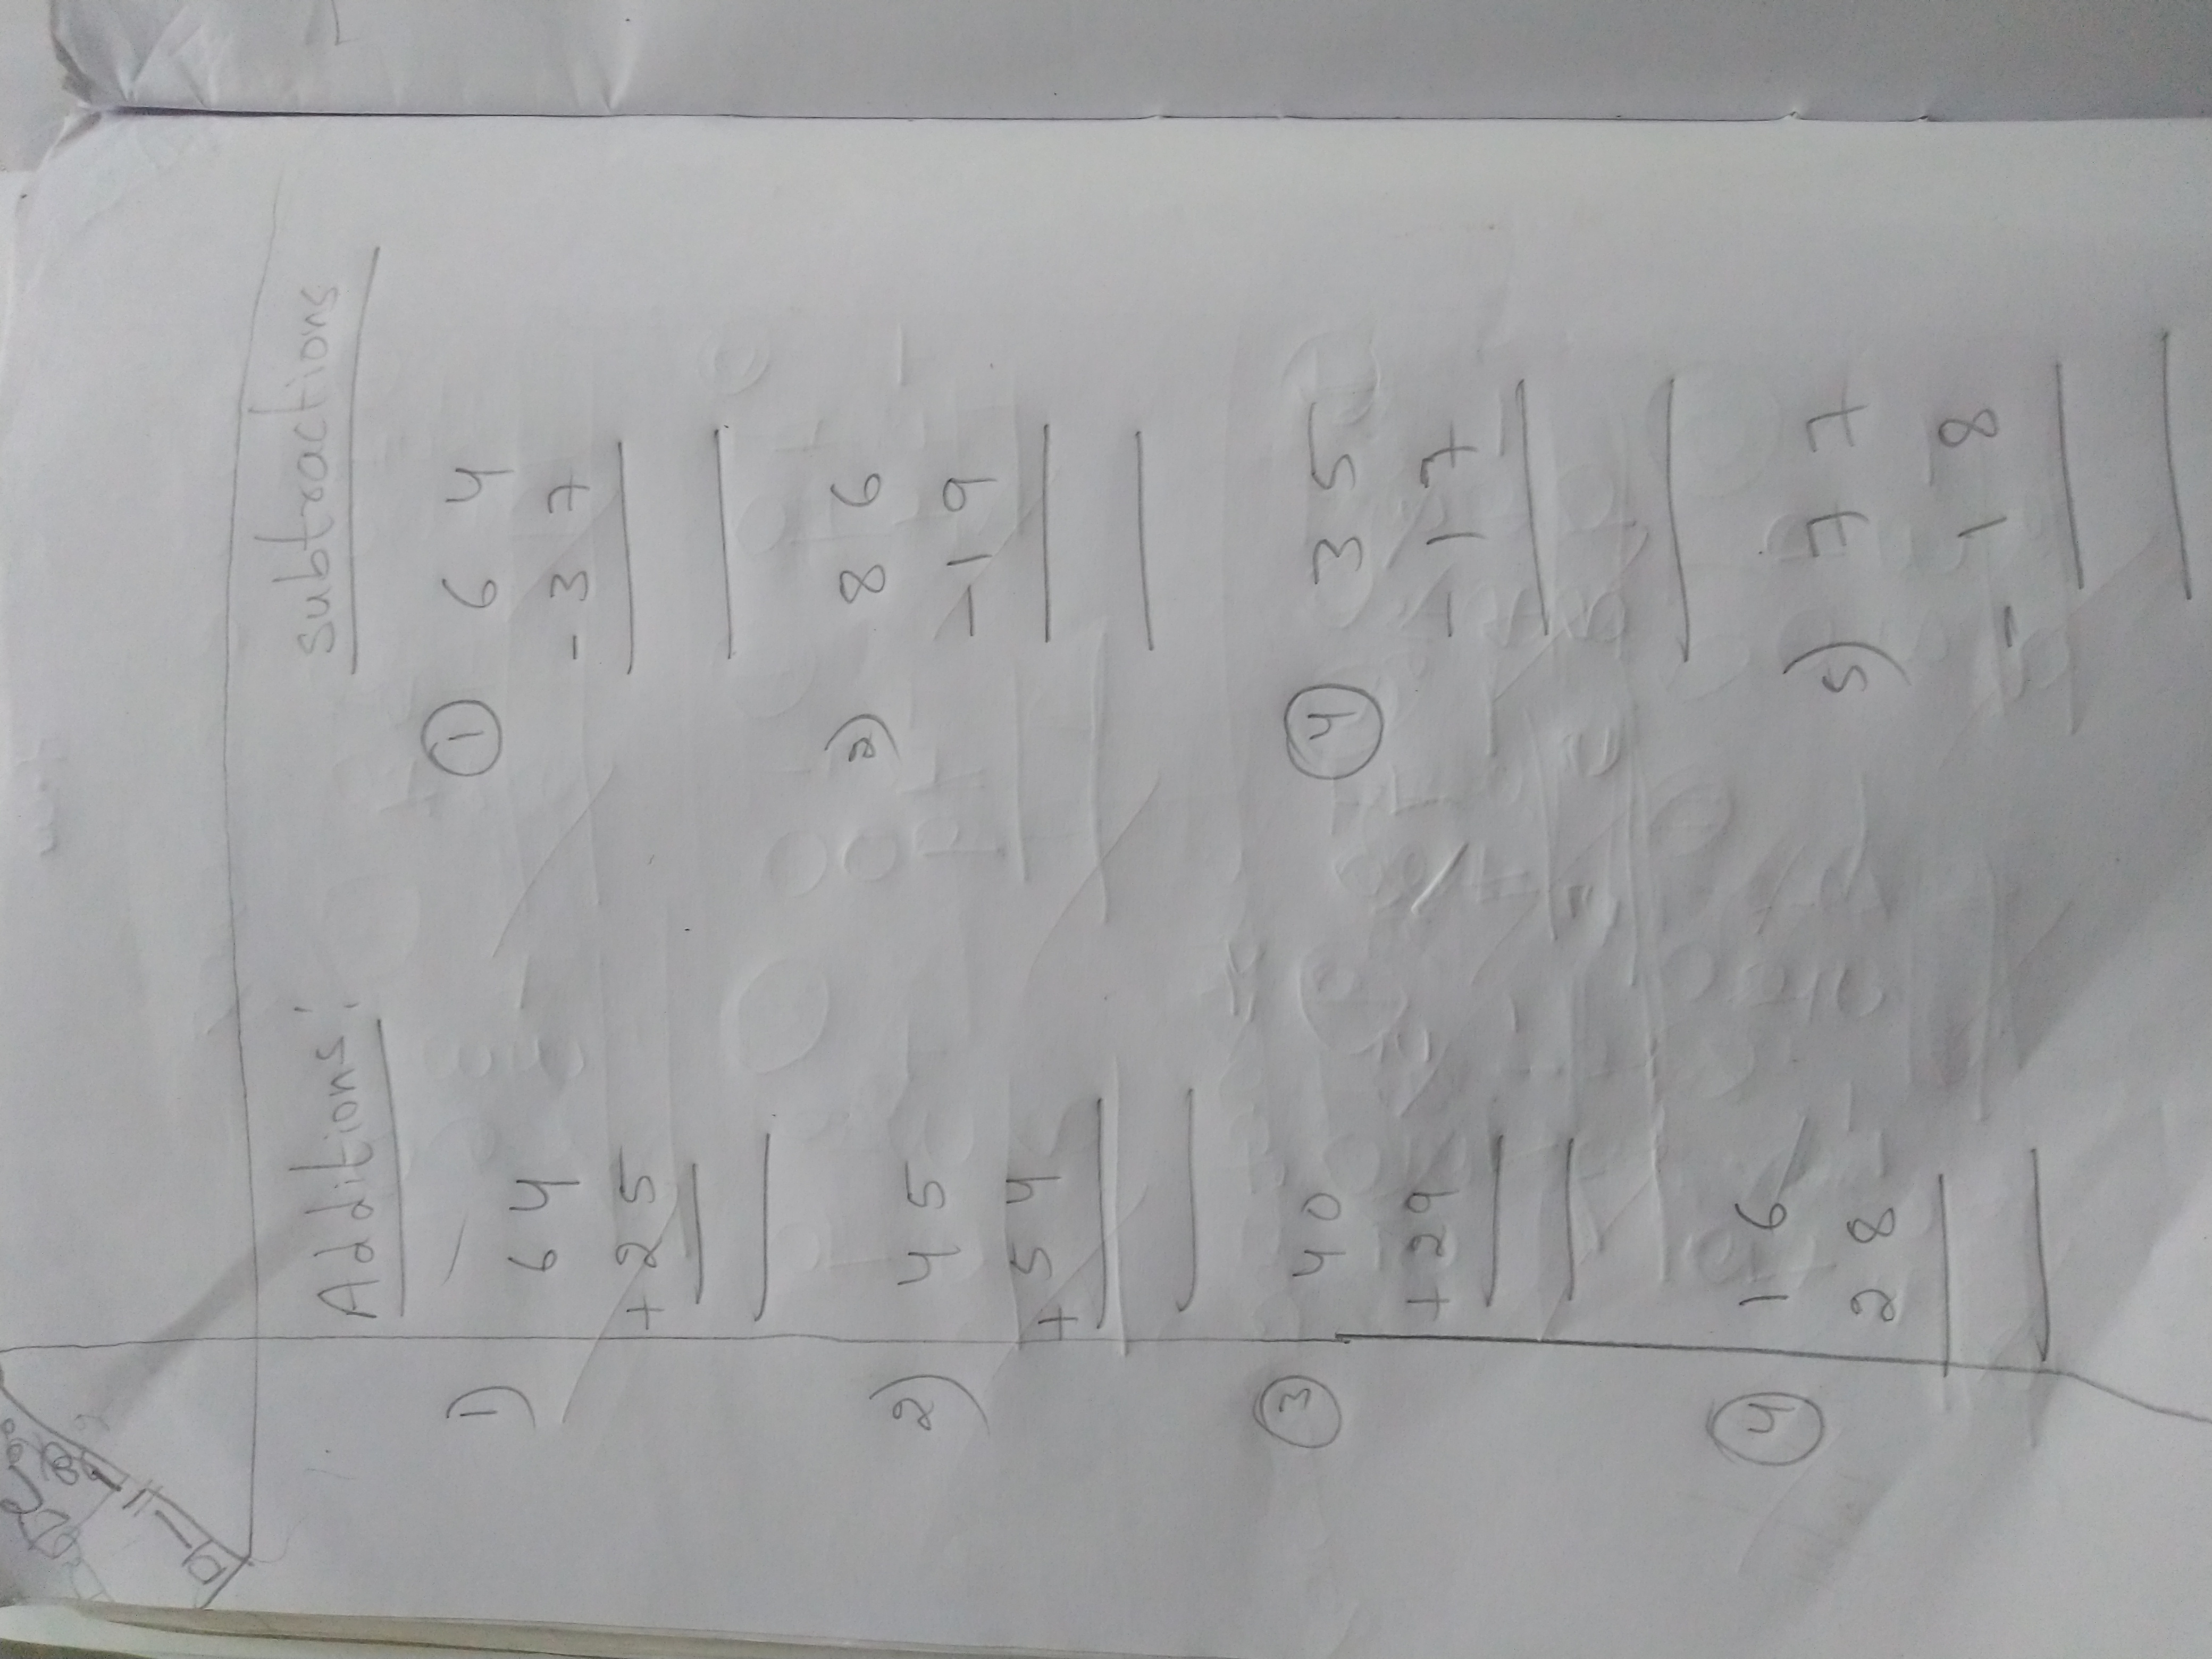 Additions:
1)
64
+25
2)
45
+54
③
40
+29
④
16
28
subtractions
①
64
-37
2)
86
-19
④
35
-17
5)
77
-18